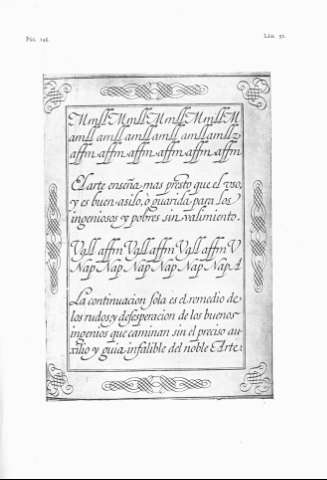 Pág. 146.
Lám. 50.
MmllMmllMmllMmllM
amll amll amll amll amllamllz
affm affm affm affm affm affm
El arte enseña mas presto que el vso,
y es buen asilo, ò guarida para los
ingeniosos y pobres sin valimiento.
Vall affm Vall affm Vall affm V
Nap Nap Nap Nap Nap Nap A
La continuacion sola es el remedio de
los rudos y desesperacion de los buenos
ingenios que caminan sin el preciso au-
xilio y guia infalible del noble Arte: